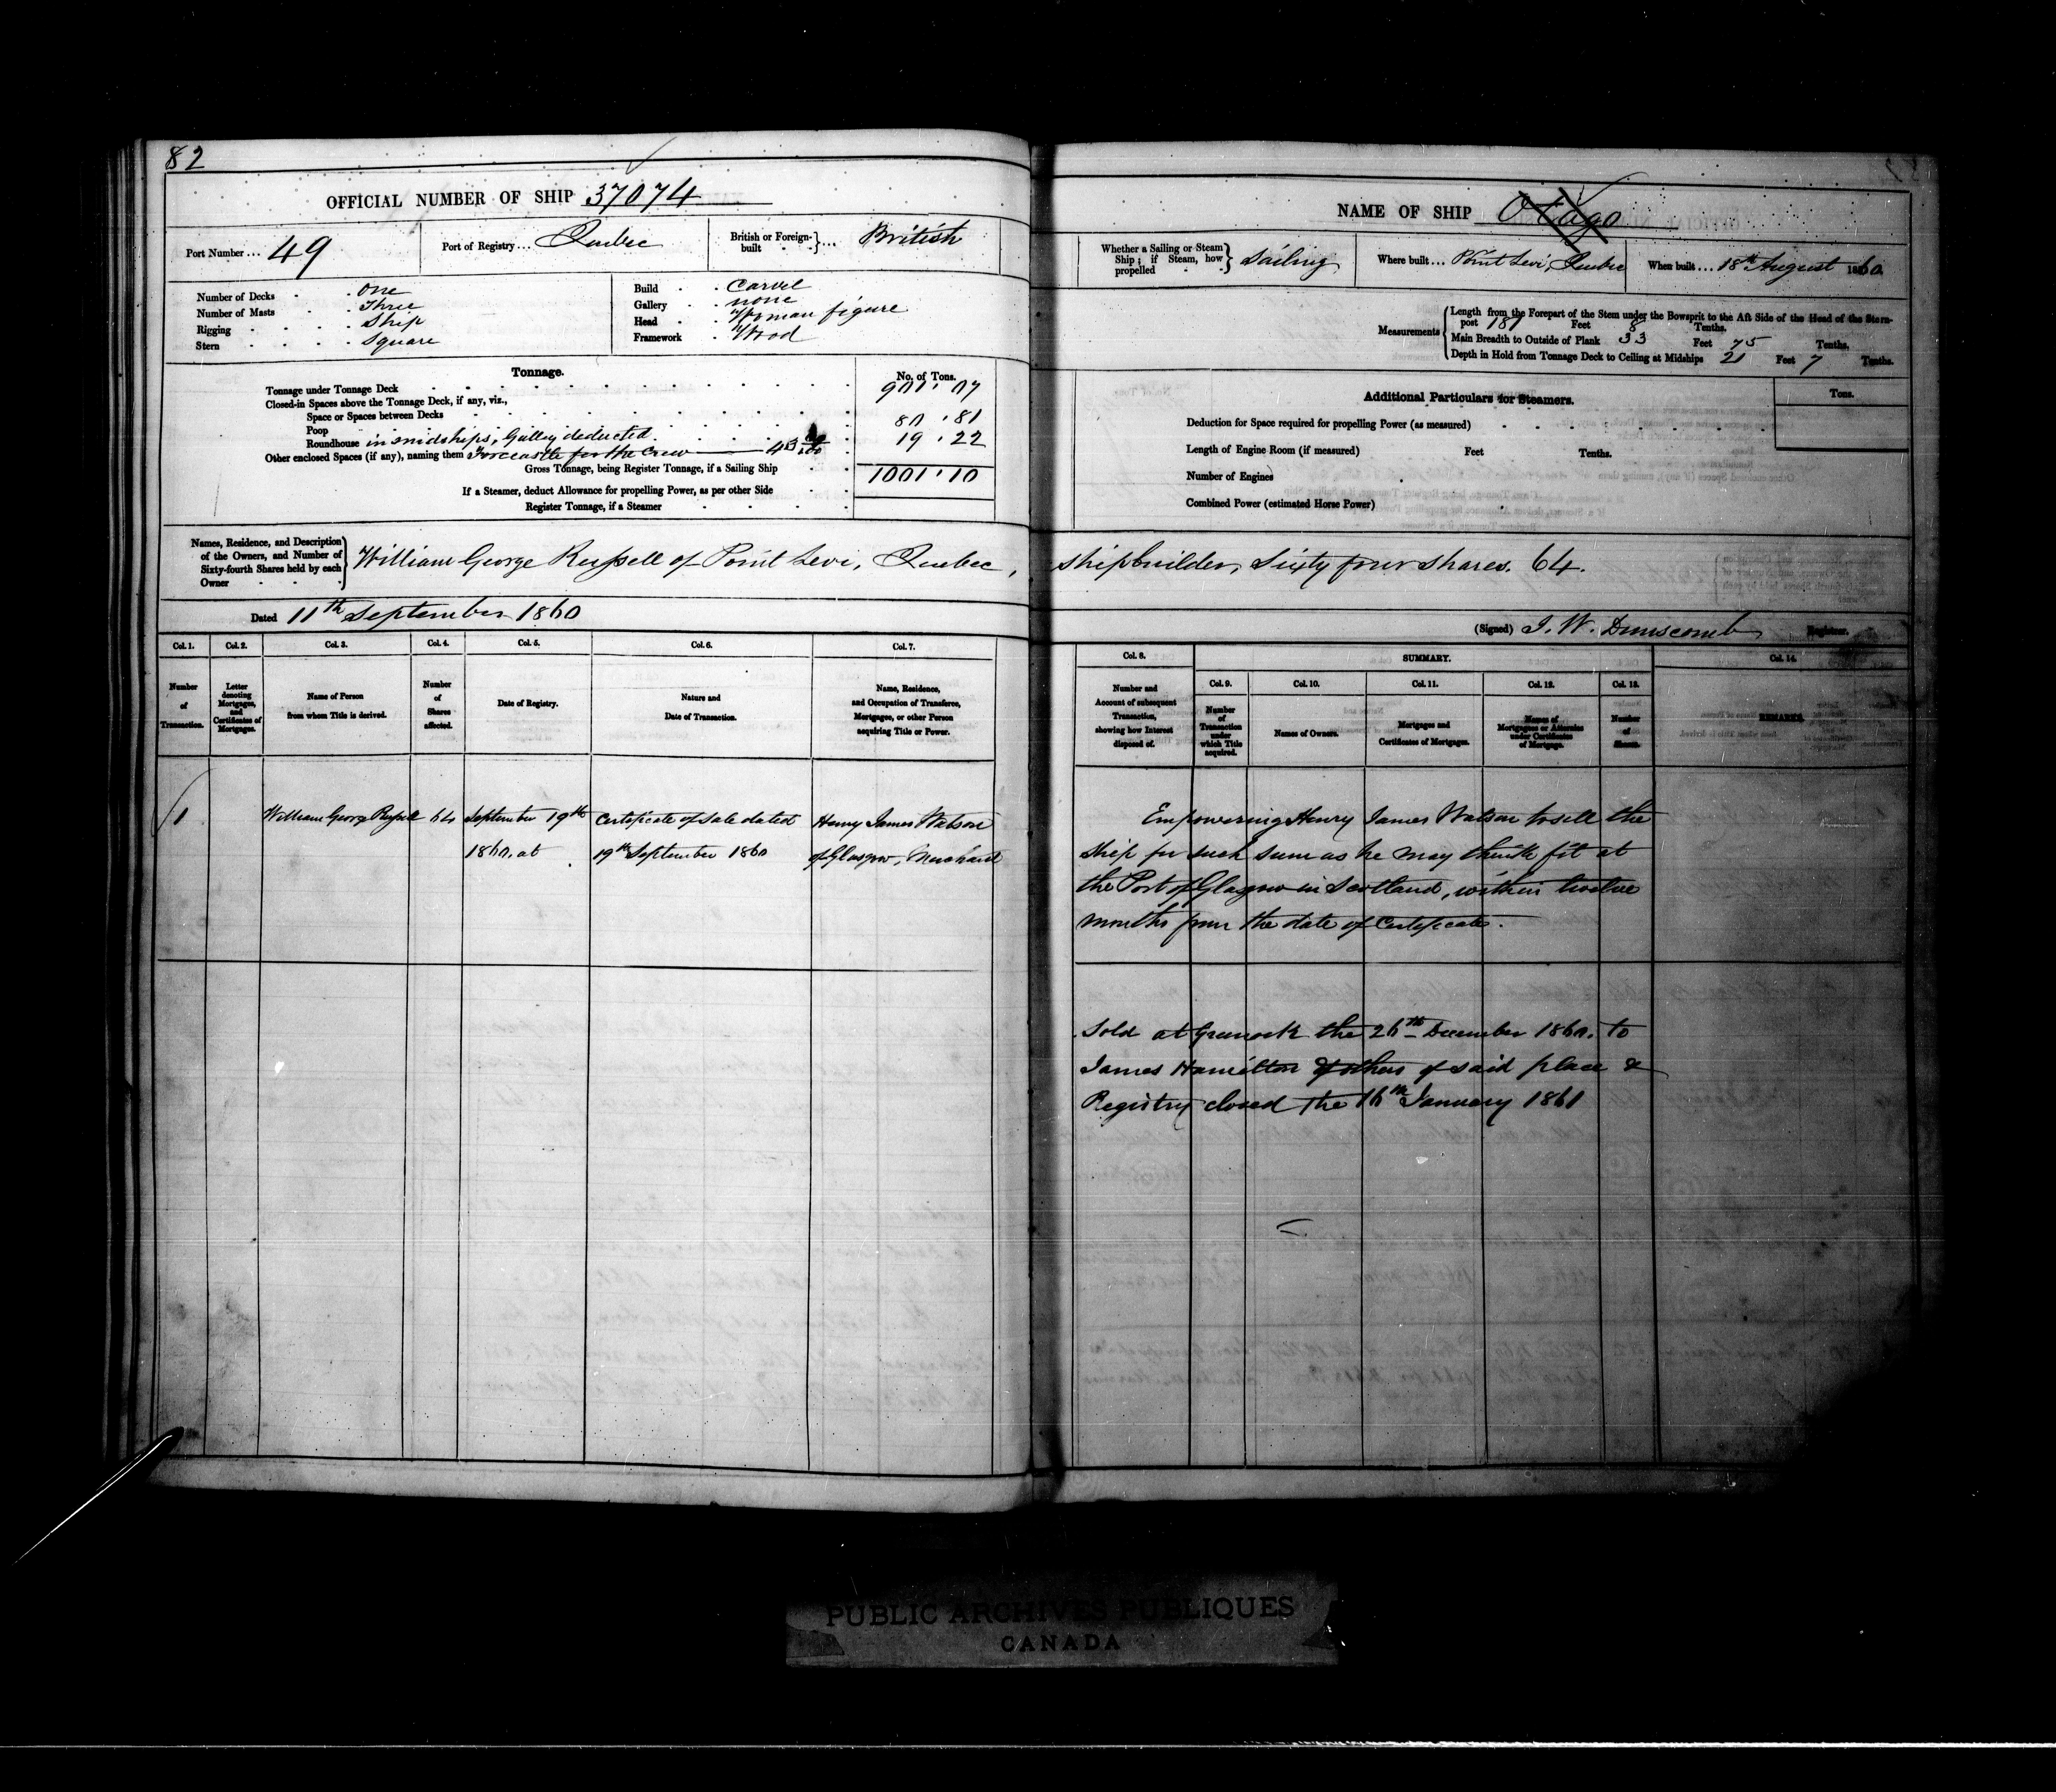 82
OFFICIAL NUMBER OF SHIP 37074
Port Number ... 49
Port of Registry ... Quebec
British or Foreign-built ... British
Number of Decks . . One
Number of Masts . . Three
Rigging . . . . Ship
Stern . . . . Square
Build . . Carvel
Gallery . . none
Head . . Woman figure
Framework . Wood
Tonnage. No. of Tons.
Tonnage under Tonnage Deck 901.07
Closed-in Spaces above the Tonnage Deck, if any, viz.,
Space or Spaces between Decks
Poop 80.81
Roundhouse in midships, Galley deducted 19.22
Other enclosed Spaces (if any), naming them Forecastle for the Crew
Gross Tonnage, being Register Tonnage, if a Sailing Ship 1001.10
If a Steamer, deduct Allowance for propelling Power, as per other Side
Register Tonnage, if a Steamer
Names, Residence, and Description of the Owners, and Number of Sixty-fourth Shares held by each Owner
William George Russell of Point Levi, Quebec,
Dated 11th September 1860
Col. 1. Col. 2. Col. 3. Col. 4. Col. 5. Col. 6. Col. 7.
Number of Transaction.
Letter denoting Mortgages, and Certificates of Mortgages.
Name of Person from whom Title is derived.
Number of Shares affected.
Date of Registry.
Nature and Date of Transaction.
Name, Residence, and Occupation of Transferee, Mortgagee, or other Person acquiring Title or Power.
1 William George Russell 64 September 19th Certificate of Sale dated Henry James Watson
1860. at 19th September 1860 of Glasgow, Merchant
NAME OF SHIP Otago
Whether a Sailing or Steam Ship; if Steam, how propelled Sailing
Where built ... Point Levi, Quebec
When built ... 18th August 1860
Measurements
Length from the Forepart of the Stem under the Bowsprit to the Aft Side of the Head of the Stern-
post 181 Feet 8 Tenths.
Main Breadth to Outside of Plank 33 Feet 75 Tenths.
Depth in Hold from Tonnage Deck to Ceiling at Midships 21 Feet 7 Tenths.
Additional Particulars for Steamers. Tons.
Deduction for Space required for propelling Power (as measured)
Length of Engine Room (if measured) Feet Tenths.
Number of Engines
Combined Power (estimated Horse Power)
Shipbuilder, Sixty four shares. 64.
(Signed) J. W. Dunscomb Registrar.
Col. 8. SUMMARY. Col. 14.
Col. 9. Col. 10. Col. 11. Col. 12. Col. 13.
Number and Account of subsequent Transaction, showing how Interest disposed of.
Number of Transaction under which Title acquired.
Names of Owners.
Mortgages and Certificates of Mortgages.
Names of Mortgagees or Attornies under Certificates of Mortgage.
Number of Shares.
REMARKS.
Empowering Henry James Watson to sell the
ship for such sum as he may think fit at
the Port of Glasgow in Scotland, within twelve
months from the date of Certificate.
Sold at Greenock the 26th December 1860. to
James Hamilton & others of said place &
Registry closed the 16th January 1861
PUBLIC ARCHIVES PUBLIQUES
CANADA